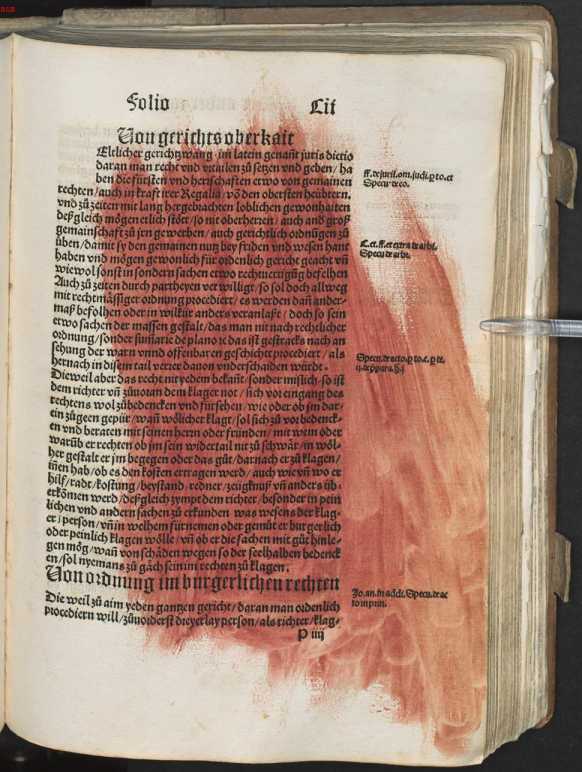 Folio Lii
Von gerichts oberkait
Eltlicher gerichtzwang / im latein genañt juris dictio
daran man recht vnd vrtailen zů setzen vnd geben / ha
ben die fürsten vnd herschafften etwo von gemainen
rechten / auch in krafft irer Regalia / võ den obersten heübtern.
vnd zů zeiten mit lang hergebrachten loblichen gewonhaiten
deßgleich mögen etlich stött / so nit oberherren / auch and groß
gemainschafft zů jrn gewerben / auch gerichtlich ordnũgen zů
üben / damit sy den gemainen nutz bey friden vnd wesen hant
haben vnd mögen gewonlich für ordenlich gericht geacht vñ
wiewol sonst in sondern sachen etwo rechtuertigũg befelhen
Auch zů zeiten durch partheyen verwilligt / so sol doch allweg
mit rechtmässiger ordnung procediert / es werden dañ ander-
maß befolhen oder in wilkür anders veranlaßt / doch so sein
etwo sachen der massen gestalt / das man nit nach rechtlicher
ordnung / sonder sum̃arie de plano ic das ist gestracks nach an
sehung der warn vnnd offenbaren geschicht procediert / als
hernach in disem tail verrer dauon vnderschaiden würdt.
Die weil aber das recht nit yedem bekañt / sonder mißlich / so ist
dem richter vñ zůuoran dem klager not / sich vor eingang des
rechtens wol zů bedencken vnd fürsehen / wie oder ob jm dar-
ein zů geen gepür / wañ wölicher klagt / sol sich zů vor bedenck-
en vnd beraten mit seinen herrn oder fründen / mit wem oder
warũb er rechten ob jm sein widertail nit zů schwär / in wöl-
her gestalt er jm begegen oder das gůt / darnach er zů klagen /
iñen hab / ob es den kosten ertragen werd / auch wie vñ wo er
hilf / radt / kostung / beystand / redner / zeügknuß vñ anders üb-
erkömen werd / deßgleich zympt dem richter / besonder in pein
lichen vnd andern sachen zů erkunden was wesens der klag-
er / person / vñ in welhem fürnemen oder gemüt er burgerlich
oder peinlich klagen wölle / vñ ob er die sachen mit güt hinle-
gen mög / wañ von schäden wegen so der seelhalben bedenck
en / sol nyemans zů gäch sein im rechten zů klagen.
Von ordnung im burgerlichen rechten
Die weil zů aim yeden gantzen gericht / daran man ordenlich
procediern will / zůuorderst dreyerlay person / als richter / klag-
P iiij
ff. de juris. om. judi. p to. et
Specu. de eo.
C. et. ff. et extra de arbi.
Specu. de arbi.
Specu. de acto. p to. c. p te.
Jo. an. in addi. Specu. de ac
to in prin.